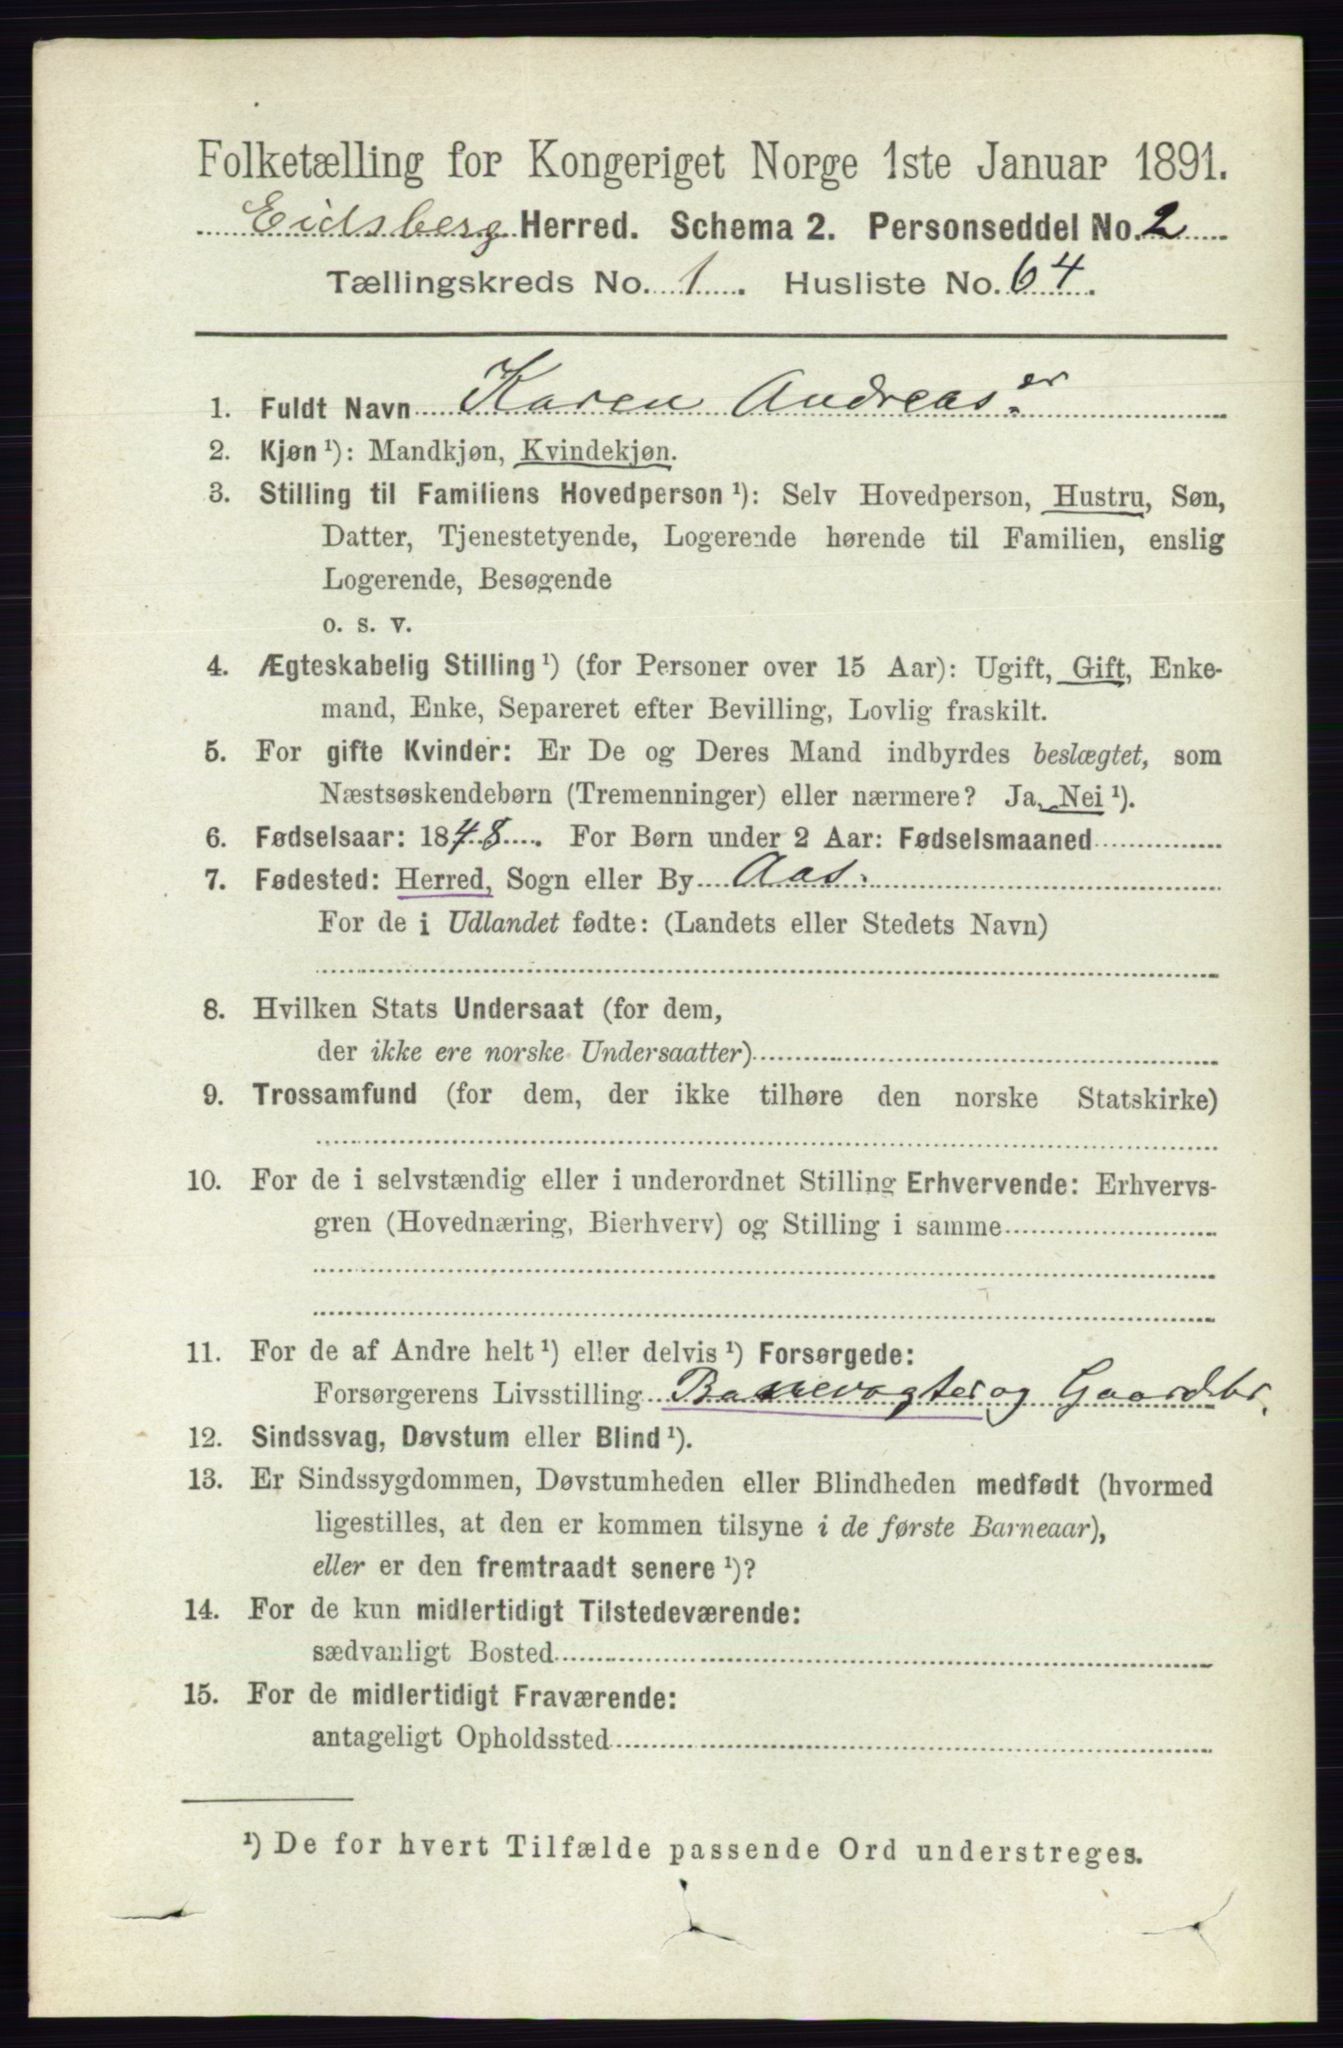 Folketælling for Kongeriget Norge 1ste Januar 1891.
Eidsberg Herred. Schema 2. Personseddel No. 2
Tællingskreds No. 1. Husliste No. 64.
1. Fuldt Navn Karen Andreaser
2. Kjøn¹): Mandkjøn, Kvindekjøn.
3. Stilling til Familiens Hovedperson¹): Selv Hovedperson, Hustru, Søn,
Datter, Tjenestetyende, Logerende hørende til Familien, enslig
Logerende, Besøgende
o. s. v.
4. Ægteskabelig Stilling¹) (for Personer over 15 Aar): Ugift, Gift, Enke-
mand, Enke, Separeret efter Bevilling, Lovlig fraskilt.
5. For gifte Kvinder: Er De og Deres Mand indbyrdes beslægtet, som
Næstsøskendebørn (Tremenninger) eller nærmere? Ja, Nei¹).
6. Fødselsaar: 1848. For Børn under 2 Aar: Fødselsmaaned
7. Fødested: Herred, Sogn eller By Aas.
For de i Udlandet fødte: (Landets eller Stedets Navn)
8. Hvilken Stats Undersaat (for dem,
der ikke ere norske Undersaatter)
9. Trossamfund (for dem, der ikke tilhøre den norske Statskirke)
10. For de i selvstændig eller i underordnet Stilling Erhvervende: Erhvervs-
gren (Hovednæring, Bierhverv) og Stilling i samme
11. For de af Andre helt¹) eller delvis¹) Forsørgede:
Forsørgerens Livsstilling Banevogter og Gaardbr.
12. Sindssvag, Døvstum eller Blind¹).
13. Er Sindssygdommen, Døvstumheden eller Blindheden medfødt (hvormed
ligestilles, at den er kommen tilsyne i de første Barneaar),
eller er den fremtraadt senere¹)?
14. For de kun midlertidigt Tilstedeværende:
sædvanligt Bosted
15. For de midlertidigt Fraværende:
antageligt Opholdssted
¹) De for hvert Tilfælde passende Ord understreges.